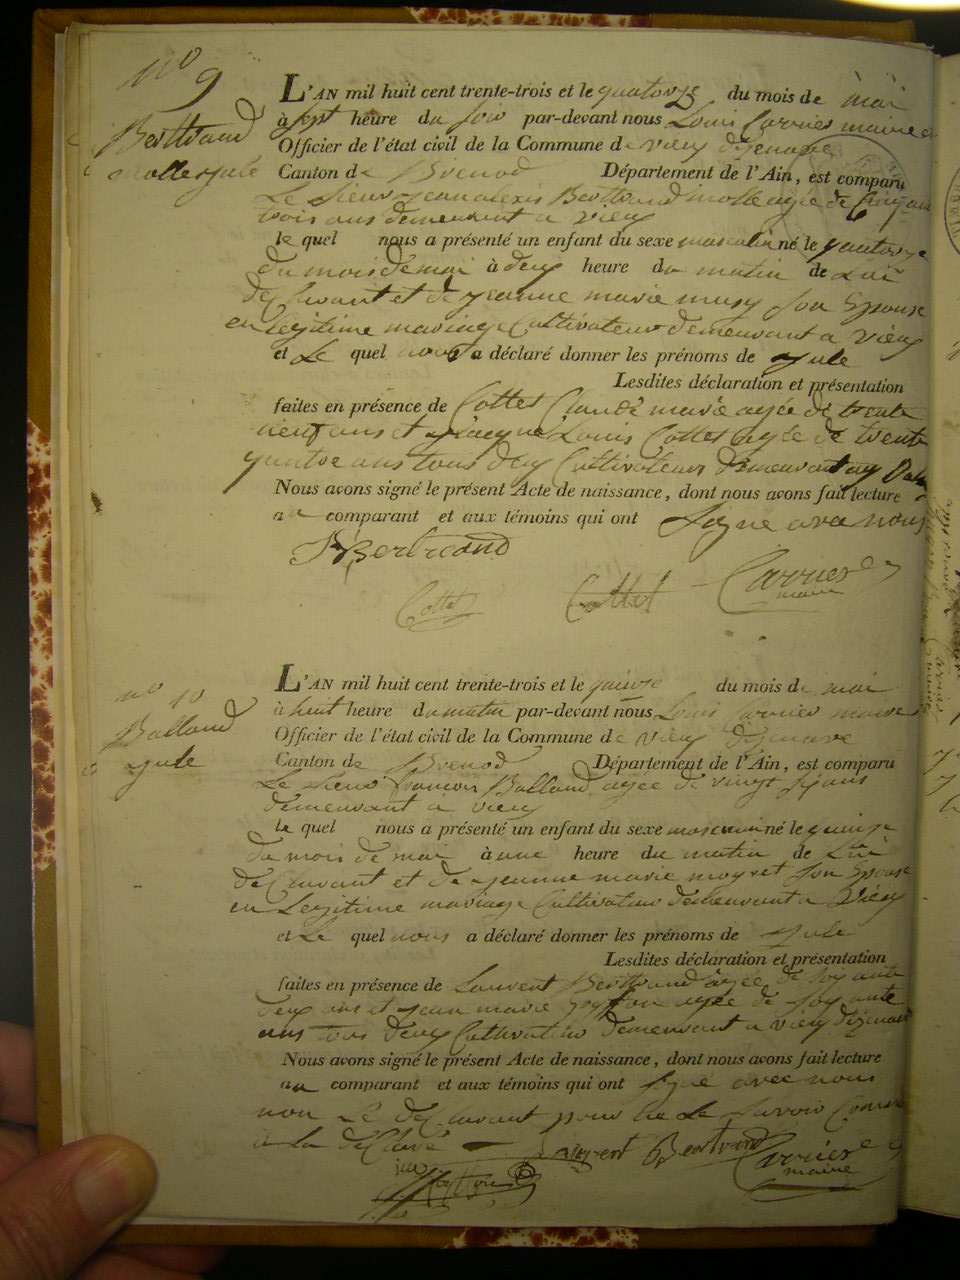 no 9
Berttrand
molle jule
L'AN mil huit cent trente-trois et le quatorze du mois de mai
à sept heure du soir par-devant nous Louis Carrier maire
Officier de l'état civil de la Commune de vieu d'izenave
Canton de Brenod Département de l'Ain, est comparu
Le sieur jean alexis Berttrand molle agée de
trois ans demeurant a vieu
le quel nous a présenté un enfant du sexe masculin né le quatorze
du mois de mai à deux heure du matin de Lui
declarant et de jeanne marie musy son Epouse
en Legitime mariage Cultivateur demeurant a vieu
et Le quel nous a déclaré donner les prénoms de jule
Lesdites déclaration et présentation
faites en présence de Cottet Claude marie agée de trente
neuf ans et jacque Louis Cottet agée de trente
quatre ans tous deux Cultivateur demeurant au
Nous avons signé le présent Acte de naissance, dont nous avons fait lecture
au comparant et aux témoins qui ont signe avec nous
Bertreand
Cottet Cottet Carrier
maire
no 10
Balland
jule
L'AN mil huit cent trente-trois et le quinze du mois de mai
à huit heure du matin par-devant nous Louis Carrier maire
Officier de l'état civil de la Commune de vieu dizenave
Canton de Brenod Département de l'Ain, est comparu
Le sieur francois Balland agée de vingt ans
demeurant a vieu
le quel nous a présenté un enfant du sexe masculin né le quinze
du mois de mai à une heure du matin de Lui
declarant et de jeanne marie moyret son Epouse
en Legitime mariage Cultivateur demeurant a vieu
et Le quel nous a déclaré donner les prénoms de jule
Lesdites déclaration et présentation
faites en présence de Laurent Berttrand agée de soixante
deux ans et jean marie agée de soixante
ans tous deux Cultivateur demeurant a vieu dizenave
Nous avons signé le présent Acte de naissance, dont nous avons fait lecture
au comparant et aux témoins qui ont signe avec nous
non Le declarant pour ne Le savoir Comme
il La declaré
Laurent Bertrand Carrier
maire